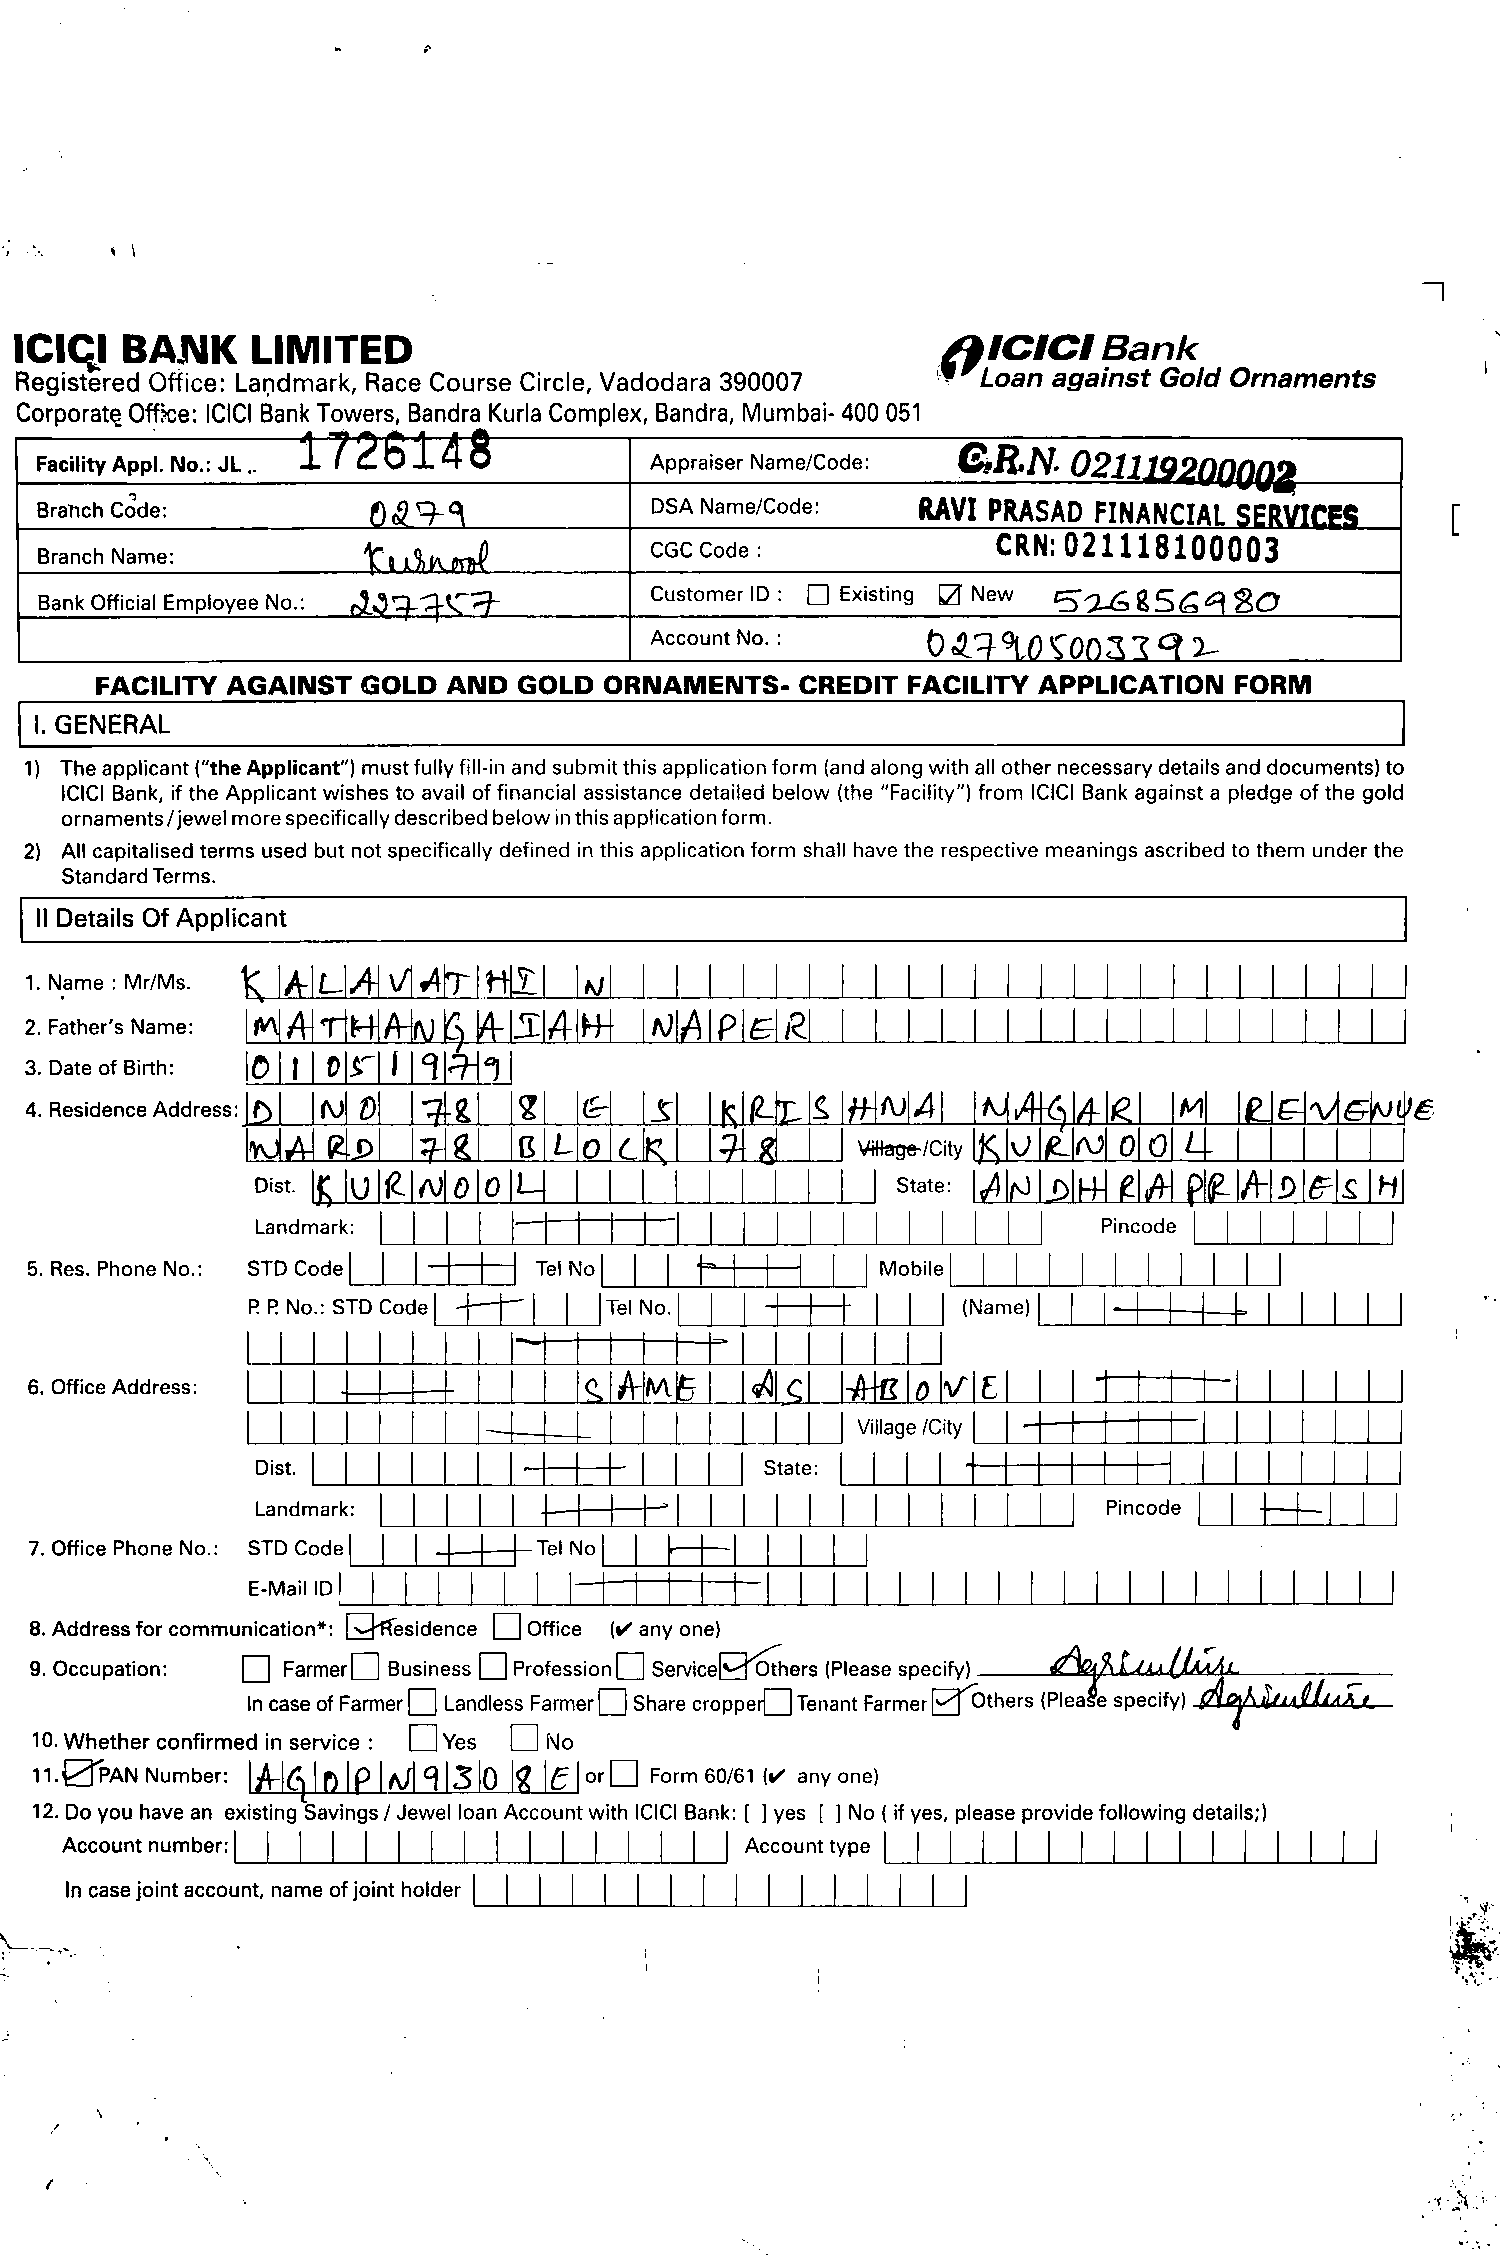 ICICI BANK LIMITED
ICICI Bank
Registered Office: Landmark, Race Course Circle, Vadodara 390007
Loan against Gold Ornaments
Corporate Office: ICICI Bank Towers, Bandra Kurla Complex, Bandra, Mumbai- 400 051
Facility Appl. No.: JL .. 1726148 Appraiser Name/Code: C.R.N. 021119200002
Branch Code: 0279 DSA Name/Code: RAVI PRASAD FINANCIAL SERVICES
Branch Name: Kurnool CGC Code : CRN: 021118100003
Bank Official Employee No.: 227757 Customer ID : Existing New 526856980
Account No. : 027905003392
FACILITY AGAINST GOLD AND GOLD ORNAMENTS- CREDIT FACILITY APPLICATION FORM
I. GENERAL
1) The applicant ("the Applicant") must fully fill-in and submit this application form (and along with all other necessary details and documents) to
ICICI Bank, if the Applicant wishes to avail of financial assistance detailed below (the "Facility") from ICICI Bank against a pledge of the gold
ornaments/jewel more specifically described below in this application form.
2) All capitalised terms used but not specifically defined in this application form shall have the respective meanings ascribed to them under the
Standard Terms.
II Details Of Applicant
1. Name : Mr/Ms. KALAVATHI N
2. Father's Name: MATHANGAIAH NAPER
3. Date of Birth: 01051979
4. Residence Address: D NO 78 8 E S KRISHNA NAGAR M REVENUE
WARD 78 BLOCK 78 Village/City KURNOOL
Dist. KURNOOL State: ANDHRA PRADESH
Landmark: Pincode
5. Res. Phone No.: STD Code Tel No Mobile
P. P. No.: STD Code Tel No. (Name)
6. Office Address: SAME AS ABOVE
Village /City
Dist. State:
Landmark: Pincode
7. Office Phone No.: STD Code Tel No
E-Mail ID
8. Address for communication*: Residence Office (✔ any one)
9. Occupation: Farmer Business Profession Service Others (Please specify) Agriculture
In case of Farmer Landless Farmer Share cropper Tenant Farmer Others (Please specify) Agriculture
10. Whether confirmed in service : Yes No
11. PAN Number: AGDPN9308E or Form 60/61 (✔ any one)
12. Do you have an existing Savings / Jewel loan Account with ICICI Bank: [ ] yes [ ] No ( if yes, please provide following details;)
Account number: Account type
In case joint account, name of joint holder